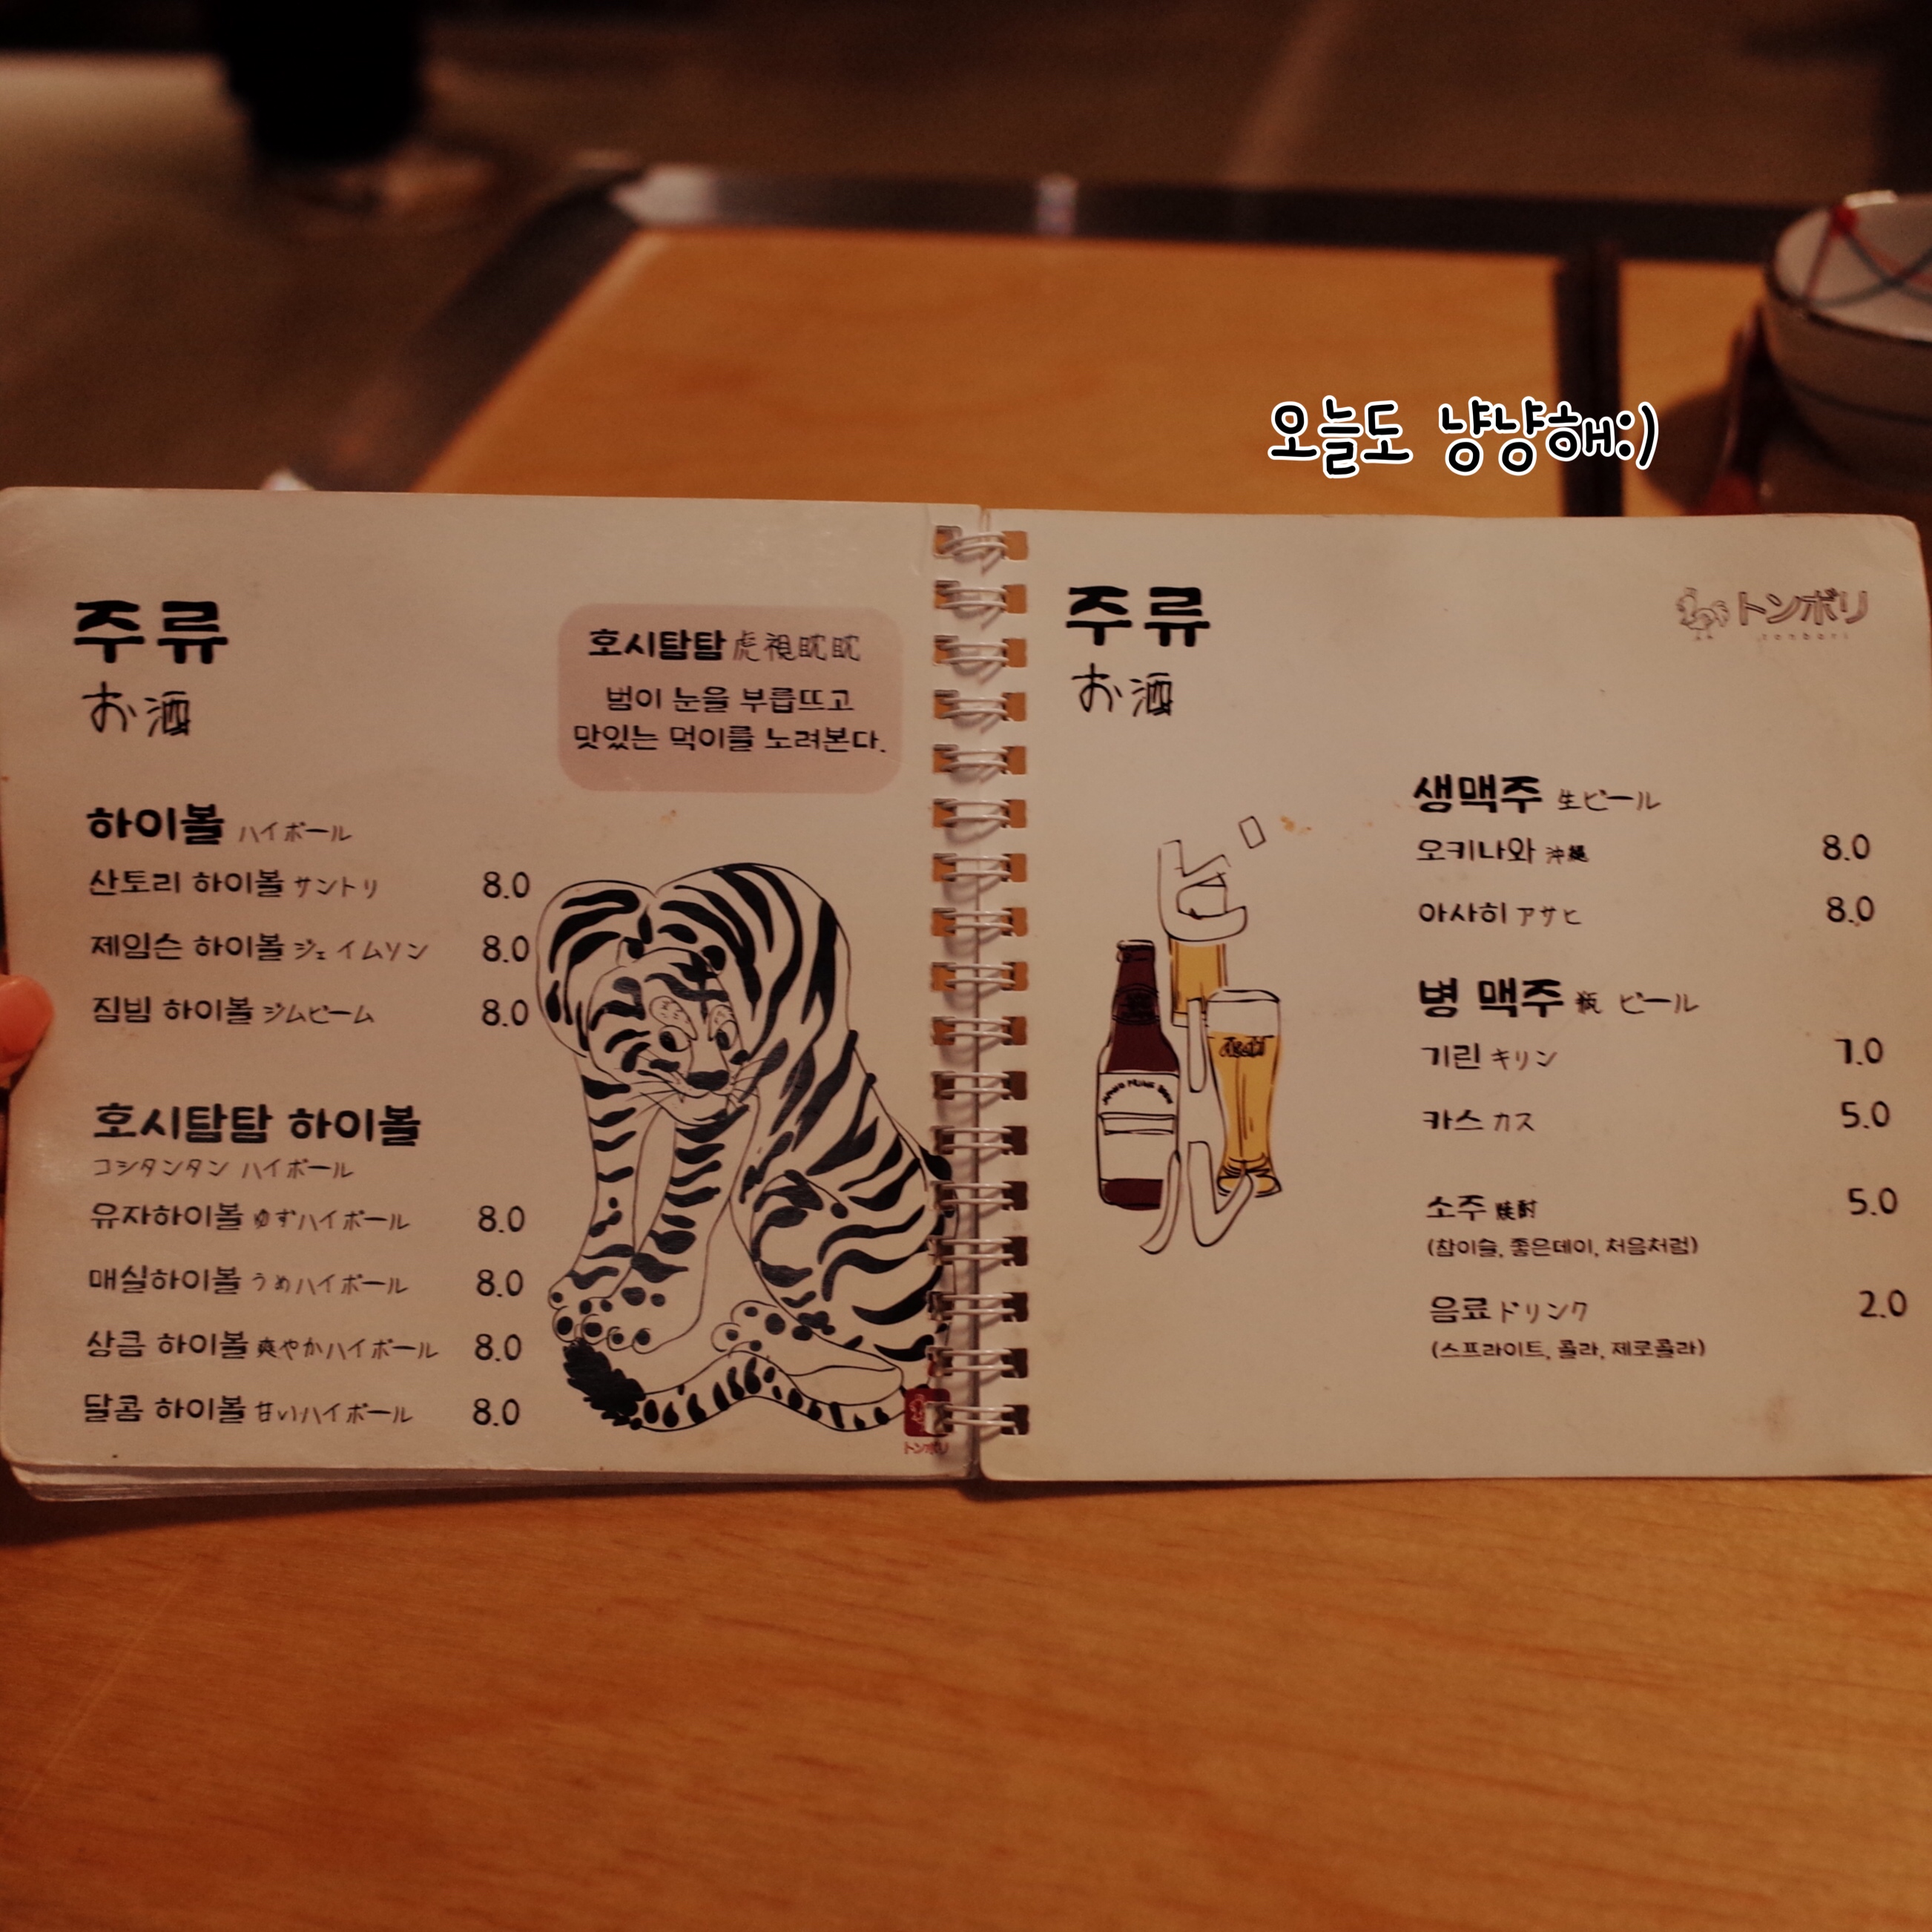 오늘도 냥냥해:)
주류
お酒
호시탐탐 虎視眈眈
범이 눈을 부릅뜨고
맛있는 먹이를 노려본다.
하이볼 ハイボール
산토리 하이볼 サントリ 8.0
제임슨 하이볼 ジェイムソン 8.0
짐빔 하이볼 ジムビーム 8.0
호시탐탐 하이볼
コシタンタン ハイボール
유자하이볼 ゆずハイボール 8.0
매실하이볼 うめハイボール 8.0
상큼 하이볼 爽やかハイボール 8.0
달콤 하이볼 甘いハイボール 8.0
トンボリ
주류
お酒
トンボリ
tonbori
생맥주 生ビール
오키나와 沖縄 8.0
아사히 アサヒ 8.0
병 맥주 瓶 ビール
기린 キリン 7.0
카스 カス 5.0
소주 焼酎 5.0
(참이슬, 좋은데이, 처음처럼)
음료 ドリンク 2.0
(스프라이트, 콜라, 제로콜라)